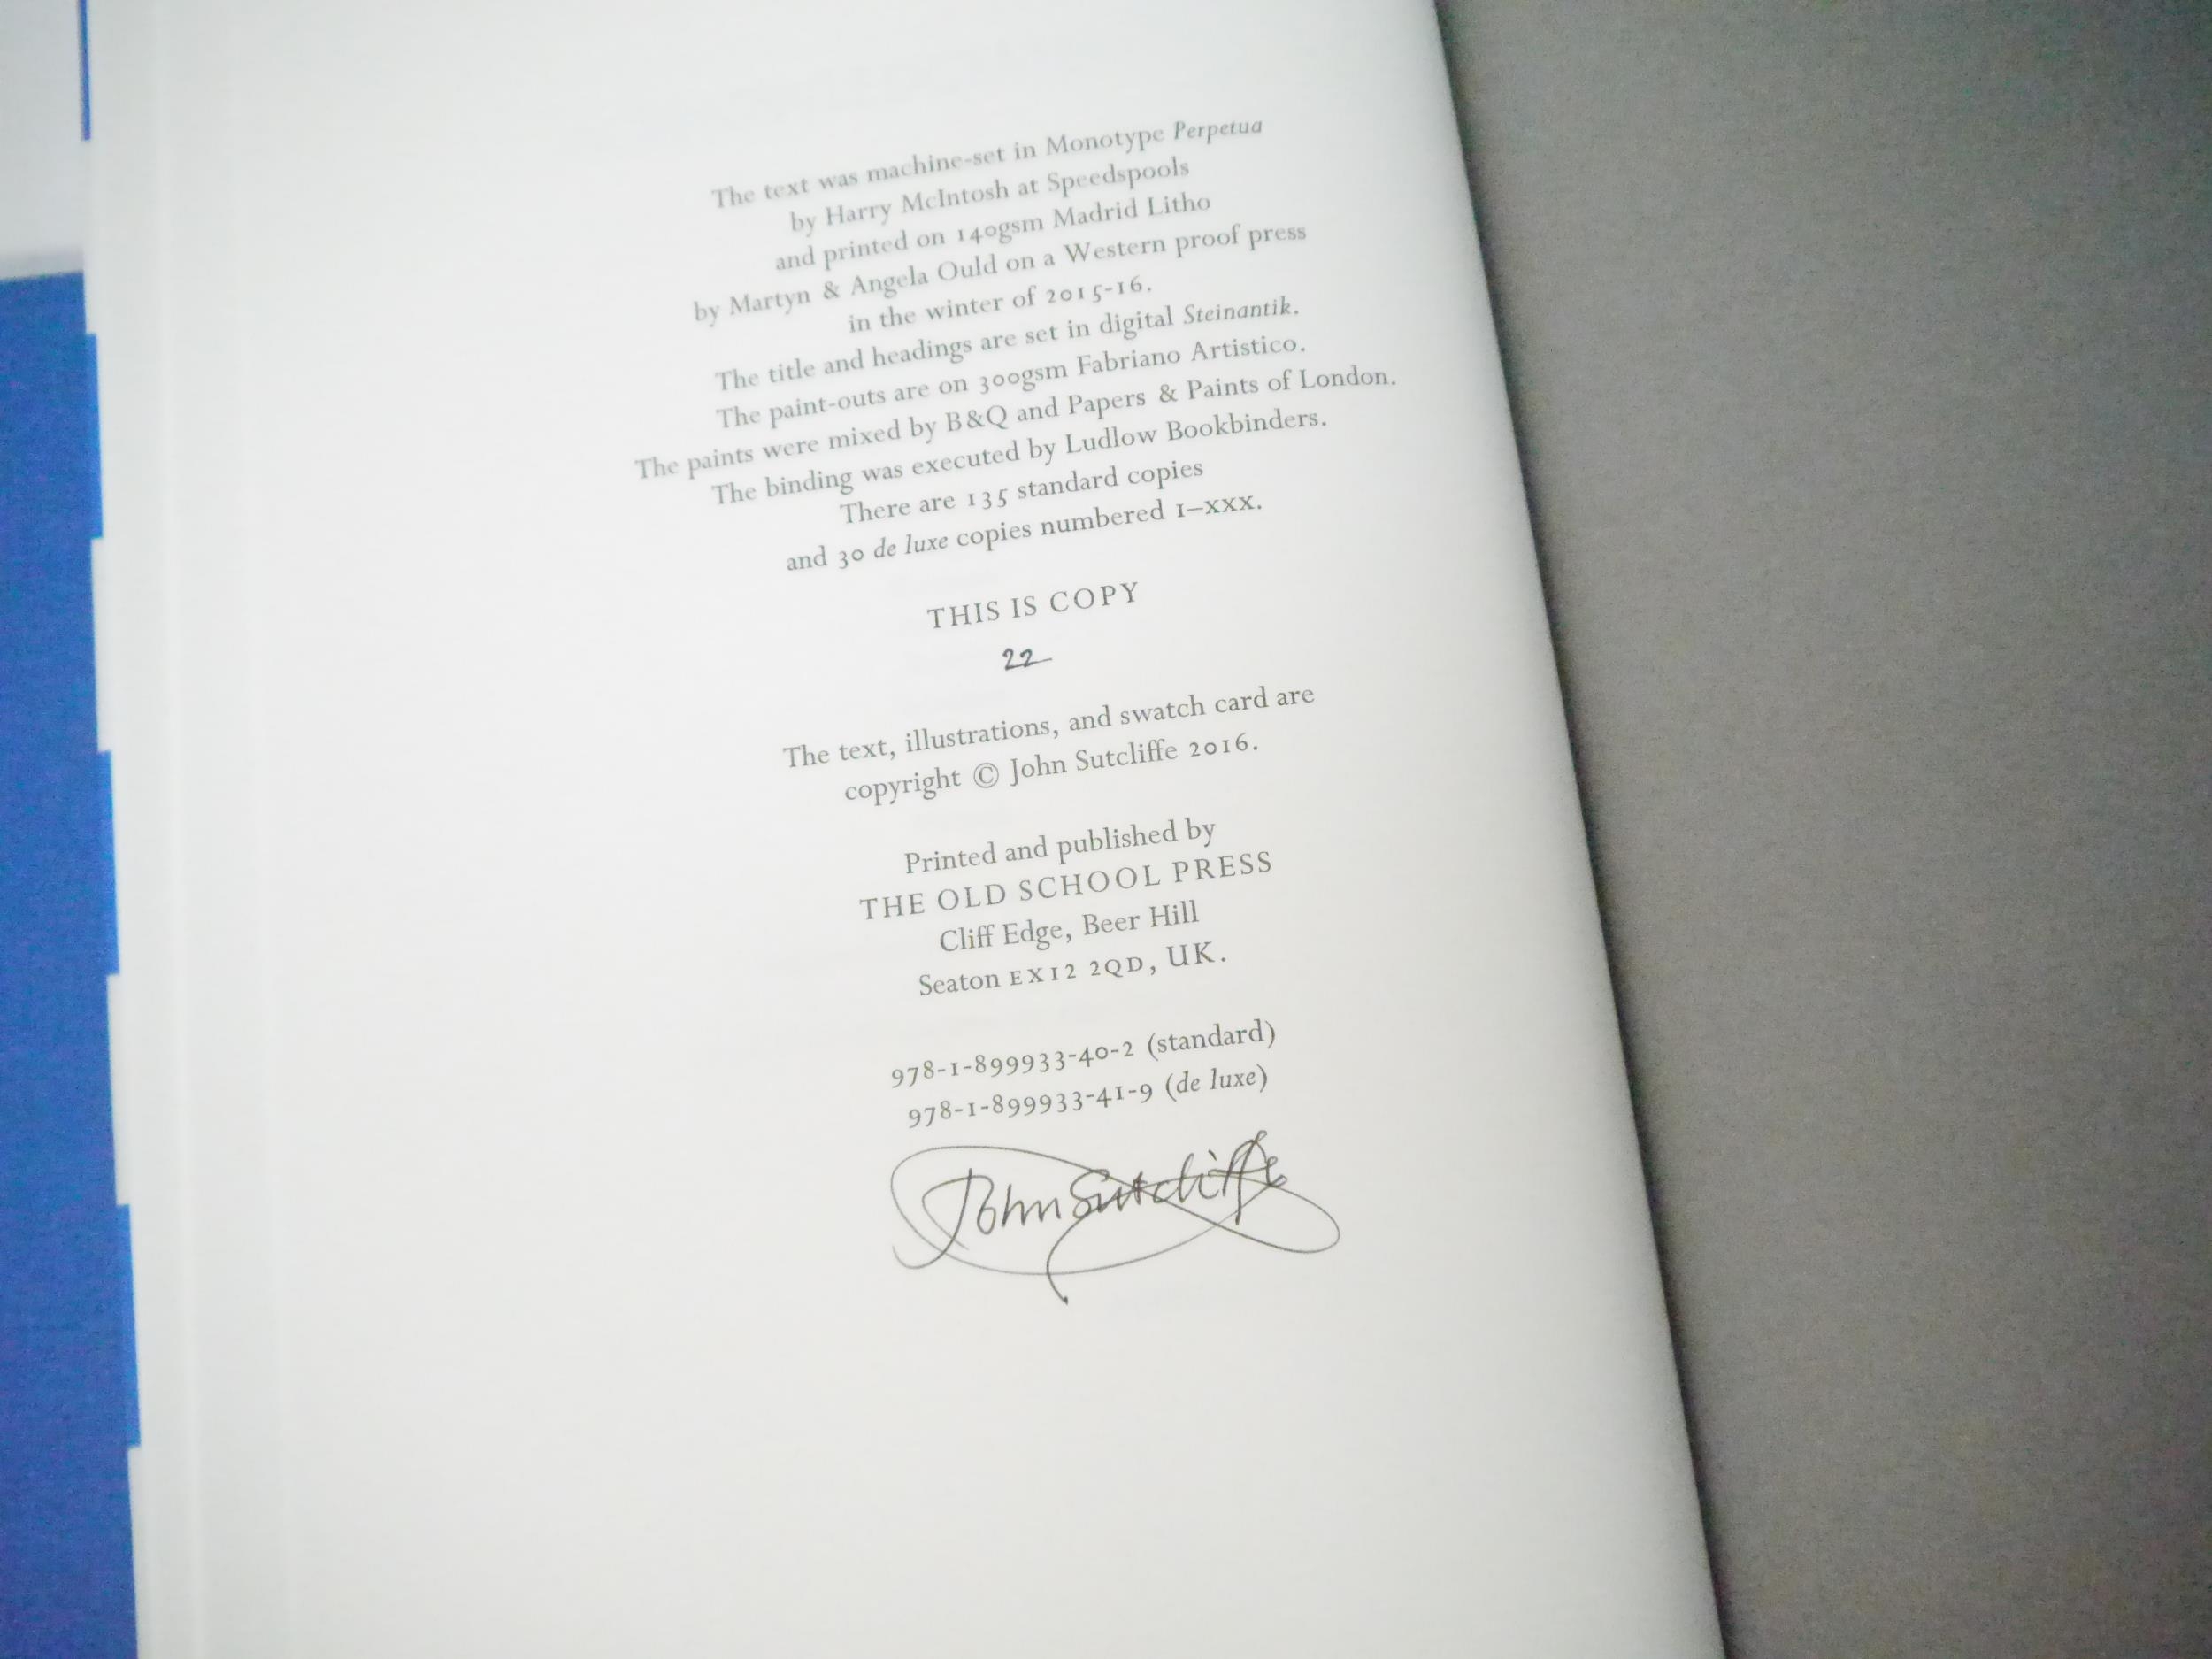 The text was machine-set in Monotype Perpetua
by Harry McIntosh at Speedspools
and printed on 140gsm Madrid Litho
by Martyn & Angela Ould on a Western proof press
in the winter of 2015-16.
The title and headings are set in digital Steinantik.
The paint-outs are on 300gsm Fabriano Artistico.
The paints were mixed by B&Q and Papers & Paints of London.
The binding was executed by Ludlow Bookbinders.
There are 135 standard copies
and 30 de luxe copies numbered I–XXX.
THIS IS COPY
22
The text, illustrations, and swatch card are
copyright © John Sutcliffe 2016.
Printed and published by
THE OLD SCHOOL PRESS
Cliff Edge, Beer Hill
Seaton EX12 2QD, UK.
978-1-899933-40-2 (standard)
978-1-899933-41-9 (de luxe)
John Sutcliffe